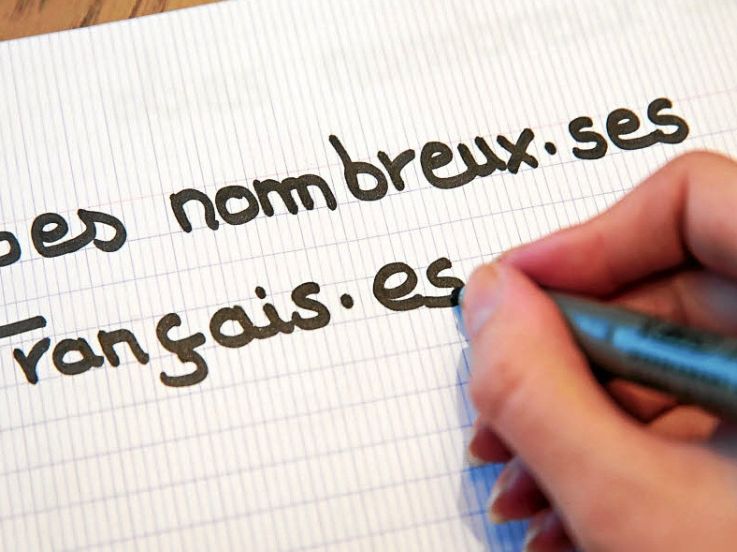 nombreux.ses
Français.es